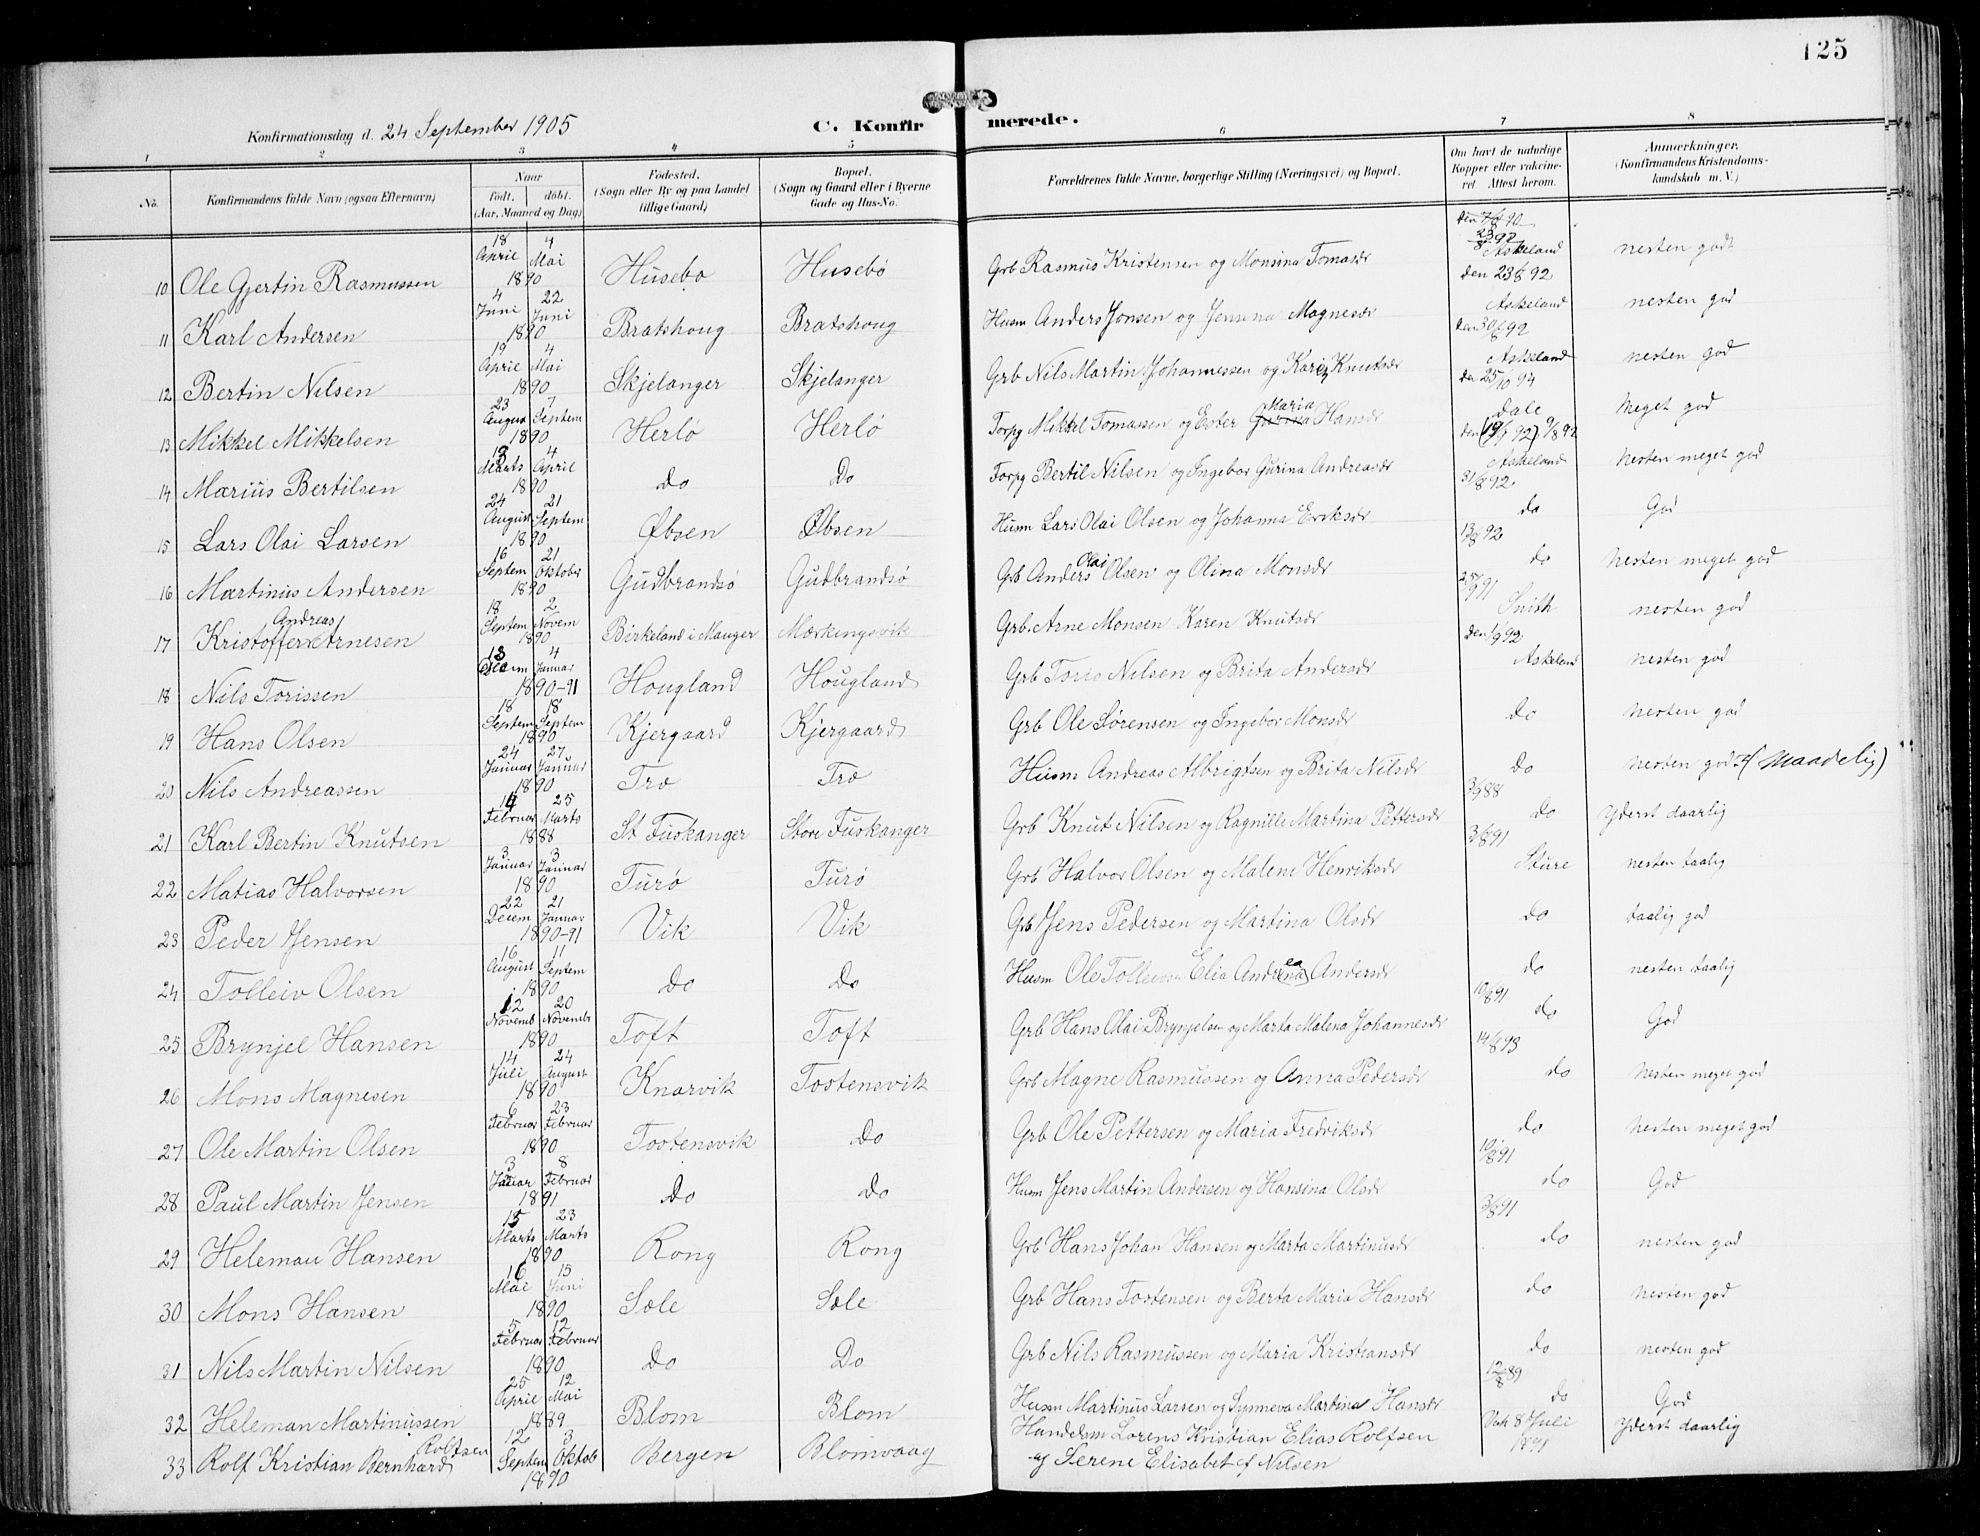 125
Konfirmationsdag d. 24 September 1905
C. Konfirmerede.
1 2 3 4 5 6 7 8
No. Konfirmandens fulde Navn (ogsaa Efternavn)
Naar født. døbt. (Aar, Maaned og Dag)
Fødested. (Sogn eller By og paa Landet tillige Gaard)
Bopæl. (Sogn og Gaard eller i Byerne Gade og Hus-No.
Forældrenes fulde Navne, borgerlige Stilling (Næringsvei) og Bopæl.
Om havt de naturlige Kopper eller vakcineret. Attest herom.
Anmærkninger. (Konfirmandens Kristendomskundskab m. V.)
10 Ole Gjertin Rasmussen 18 April 4 Mai 1890 Husebø Husebø Grb Rasmus Kristensen og Monsina Tomasdr 23/8 92 Askeland nesten godt
11 Karl Andersen 4 Juni 22 Juni 1890 Bratshoug Bratshoug Husm Anders Jonsen og Jensina Magnesdr den 23/8 92 Askeland nesten god
12 Bertin Nilsen 19 April 4 Mai 1890 Skjelanger Skjelanger Grb Nils Martin Johannessen og Kari Knutsdr den 30/8 92 Askeland nesten god
13 Mikkel Mikkelsen 23 August 7 Septem 1890 Herlø Herlø Torpg Mikkel Tomassen og Ester Maria Hansdr den 25/10 94 Dale Meget god
14 Marius Bertilsen 13 Marts 4 April 1890 do Do Torpg Bertil Nilsen og Ingebor Gurina Andreasdr 9/8 92 Askeland Nesten meget god
15 Lars Olai Larsen 24 August 21 Septem 1890 Øbsen Øbsen Husm Lars Olai Olsen og Johanna Eriksdr 31/8 92 do God
16 Martinus Andersen 16 Septem 21 Oktober 1890 Gudbrandsø Gudbrandsø Grb Anders Olai Olsen og Olina Monsdr 13/8 92 do nesten meget god
17 Kristoffer Andreas Arnesen 18 Septem 2 Novem 1890 Birkeland i Manger Mærkingsvik Grb. Arne Monsen Karen Knutsdr 91 Snith nesten god
18 Nils Torissen 13 Decem 4 Januar 1890-91 Hougland Hougland Grb Toris Nilsen og Brita Andersdr den 1/9 92 Askeland nesten god
19 Hans Olsen 18 Septem 18 Septem 1890 Kjergaard Kjergaard Grb Ole Sørensen og Ingebor Monsdr do nesten god
20 Nils Andreassen 24 Januar 27 Januar 1890 Træ Træ Husm Andreas Albrigtsen og Brita Nilsdr do nesten god (Maadelig)
21 Karl Bertin Knutsen 14 Februar 25 Marts 1888 St Fuskanger Store Fuskanger Grb Knut Nilsen og Ragnille Martina Pettersdr 3/9 88 do Yderst daarlig
22 Matias Halvorsen 3 Januar 3 Januar 1890 Turø Turø Grb Halvor Olsen og Malene Henriksdr 3/8 91 Sture nesten taalig
23 Peder Jensen 22 Decem 21 Januar 1890-91 Vik Vik Grb Jens Pedersen og Martina Olsdr do taalig god
24 Tolleiv Olsen 16 August 11 Septem 1890 do Do Husm Ole Tollevsen Elia Andrea Andersdr do nesten taalig
25 Brynjel Hansen 12 Novemb 20 Novembr 1890 Toft Toft Grb Hans Olai Brynjelsen og Marta Malena Johannesdr 10/8 91 do God
26 Mons Magnesen 14 Juli 24 August 1890 Knarvik Tostensvik Grb Magne Rasmussen og Anna Pedersdr 14/8 93 do Nesten meget god
27 Ole Martin Olsen 6 Februar 23 Februar 1890 Tostensvik Do Grb Ole Pettersen og Maria Fredriksdr do nesten meget god
28 Paul Martin Jensen 3 Januar 8 Februar 1891 do Do Husm Jens Martin Andersen og Hansina Olsdr 10/8 91 do God
29 Heleman Hansen 15 Marts 23 Marts 1890 Rong Rong Grb Hans Johan Hansen og Marta Martinusdr 3/8 91 do nesten god
30 Mons Hansen 16 Mai 15 Juni 1890 Sæle Sæle Grb Hans Tostensen og Berta Maria Hansdr do nesten god
31 Nils Martin Nilsen 5 Februar 12 Februar 1890 do Do Grb Nils Rasmussen og Maria Kristiansdr do nesten god
32 Heleman Martinussen 25 April 12 Mai 1889 Blom Blom Husm Martinus Larsen og Synneva Martina Hansdr 12/8 89 do God
33 Rolf Kristian Bernhard Rolfsen 12 Septem 3 Oktob 1890 Bergen Blomvaag Handelsm Lorens Kristian Elias Rolfsen og Serene Elisabet f Nilsen Vak 8 Juli 1891 Yderst daarlig